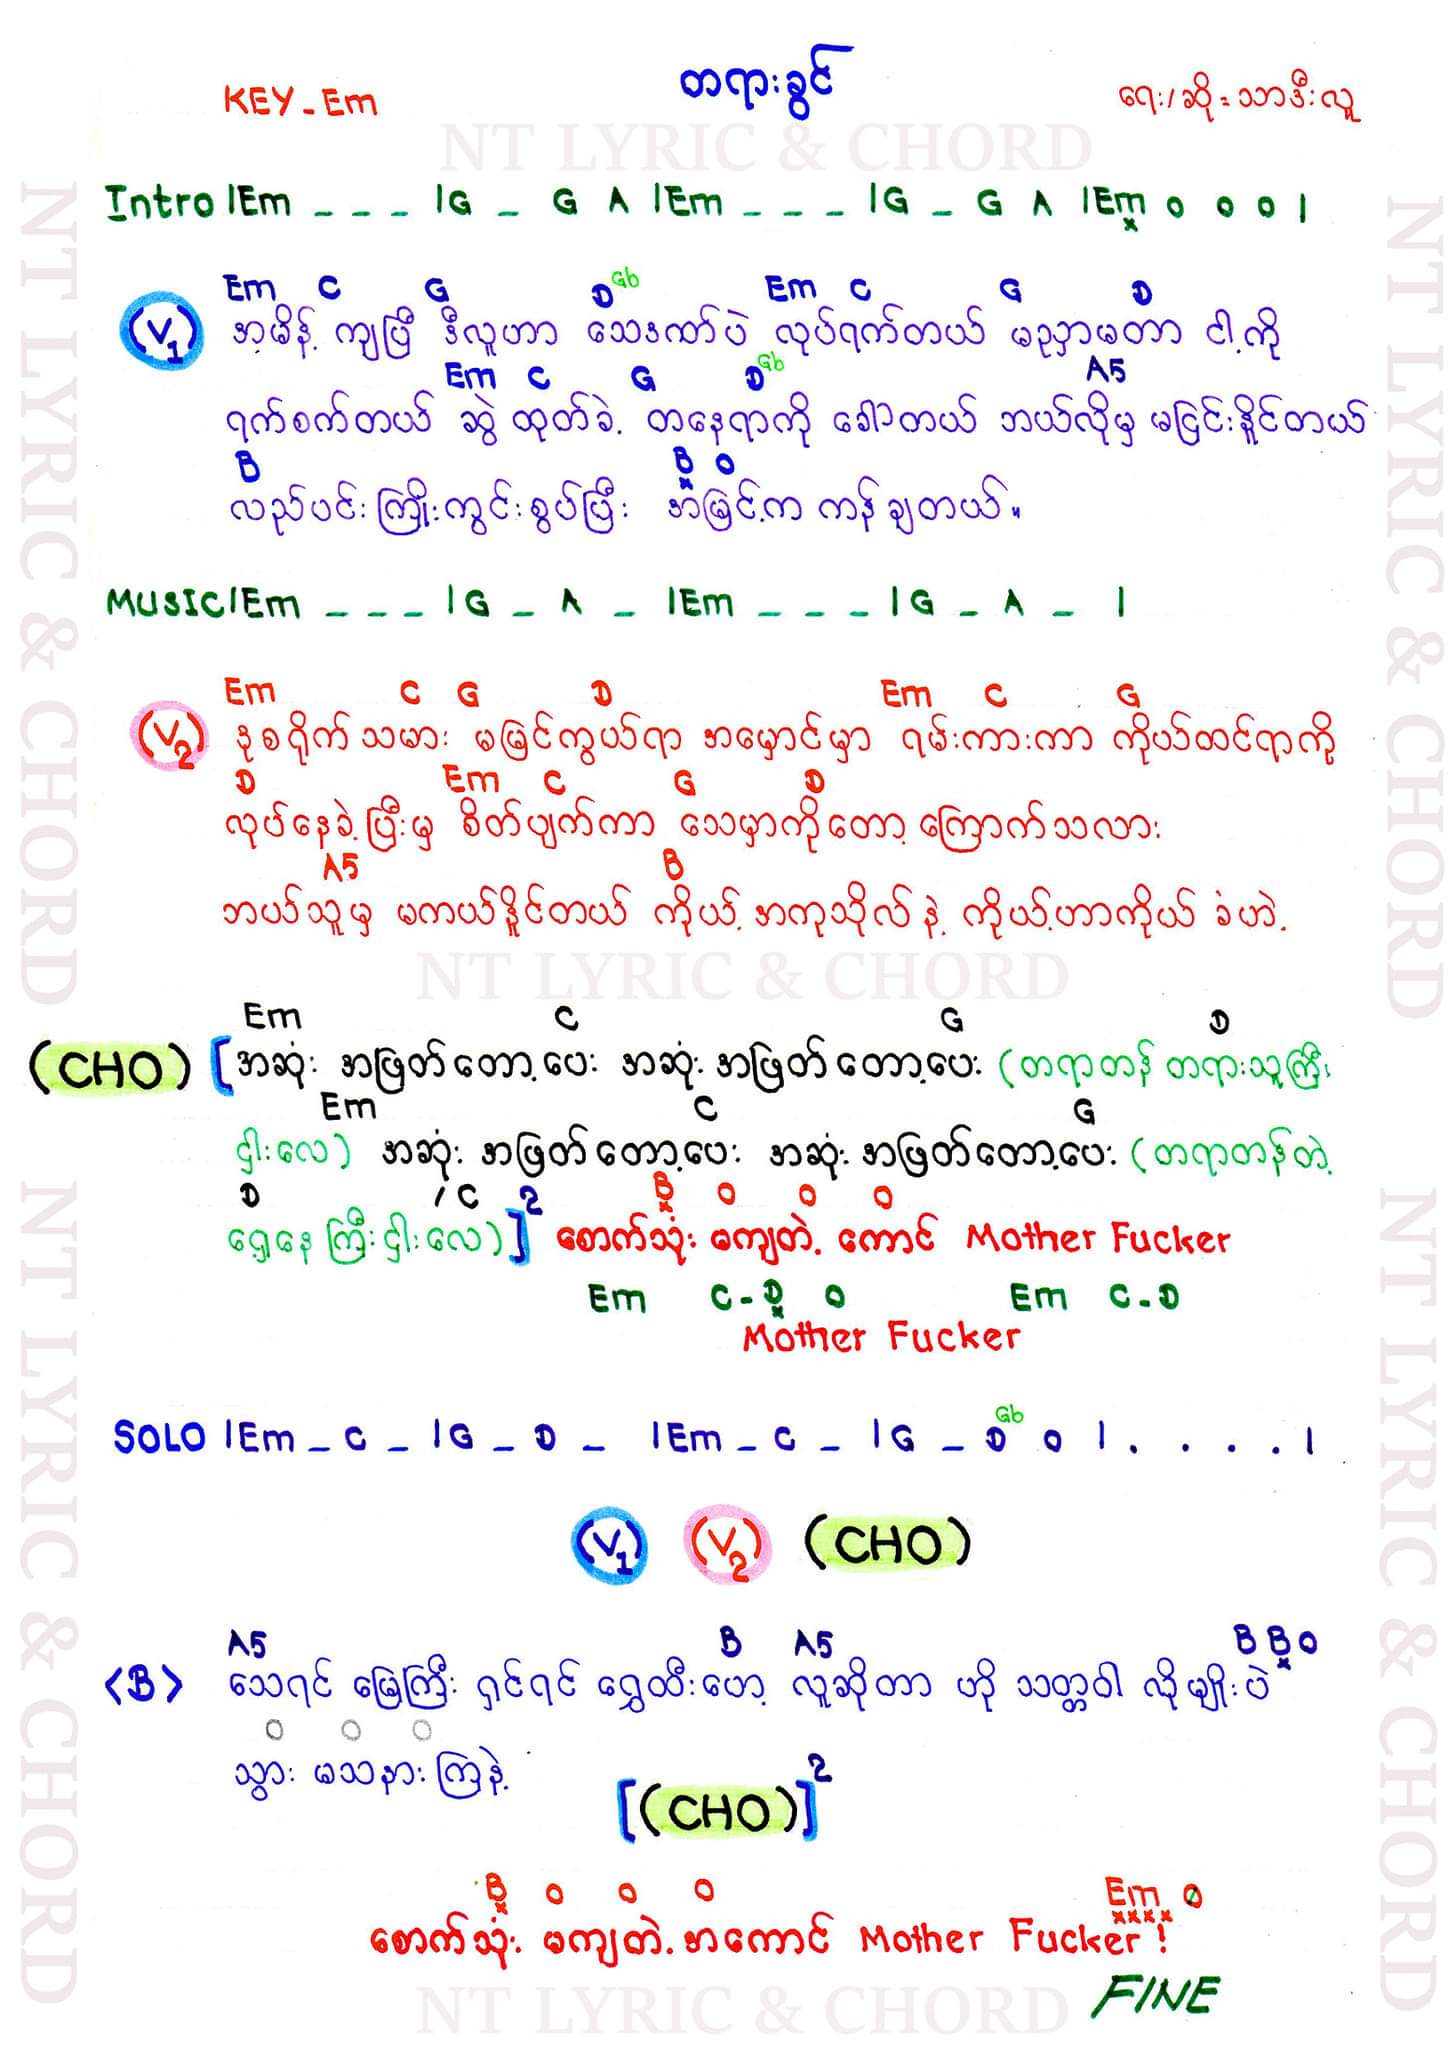 KEY - Em
တရားခွင်
ရေး/ဆို = သာဒီးလူ
NT LYRIC & CHORD
Intro |Em _ _ _ |G _ G A |Em _ _ _ |G _ G A |Em o o o |
x
Em C G D Gb Em C G D
(V1) အမိန့် ကျပြီ ဒီလူဟာ သေဒဏ်ပဲ လုပ်ရက်တယ် မညှာမတာ ငါ့ကို
Em C G D Gb A5
ရက်စက်တယ် ဆွဲ ထုတ်ခဲ့ တနေရာကို ခေါ်တယ် ဘယ်လိုမှ မငြင်းနိူင်တယ်
B B O
x
လည်ပင်း ကြိုးကွင်းစွပ်ပြီး အမြင့်က ကန်ချတယ်။
MUSIC |Em _ _ _ |G _ A _ |Em _ _ _ |G _ A _ |
Em C G D Em C G
(V2) နုစရိုက်သမား မမြင်ကွယ်ရာ အမှောင်မှာ ရမ်းကားကာ ကိုယ်ထင်ရာကို
D Em C G D
လုပ်နေခဲ့ပြီးမှ စိတ်ပျက်ကာ သေမှာကိုတော့ ကြောက်သလား
A5 B
ဘယ်သူမှ မကယ်နိူင်တယ် ကိုယ့်အကုသိုလ်နဲ့ ကိုယ့်ဟာကိုယ် ခံဟဲ့
NT LYRIC & CHORD
Em C G D
(CHO) [အဆုံး အဖြတ်တော့ပေး အဆုံး အဖြတ်တော့ပေး (တရာတန် တရားသူကြီး
Em C G
ငှါးလေ) အဆုံး အဖြတ်တော့ပေး အဆုံး အဖြတ်တော့ပေး (တရာတန်တဲ့
D / C 2 B O O O
x
ရှေ့နေကြီးငှါးလေ)] စောက်သုံး မကျတဲ့ ကောင် Mother Fucker
Em C - D O Em C - D
x
Mother Fucker
SOLO |Em _ C _ |G _ D _ |Em _ C _ |G _ D Gb O | . . . . |
(V1) (V2) (CHO)
A5 B A5 B B O
x
<B> သေရင် မြေကြီး ရှင်ရင် ရွှေထီးဟော့ လူဆိုတာ ဟို သတ္တဝါ လိုမျိုးပဲ
O O O
သွား မသနားကြနဲ့
[(CHO)]2
B O O O Em O
x xxxx
စောက်သုံး မကျတဲ့အကောင် Mother Fucker !
FINE
NT LYRIC & CHORD
NT LYRIC & CHORD
NT LYRIC & CHORD
NT LYRIC & CHORD
NT LYRIC & CHORD